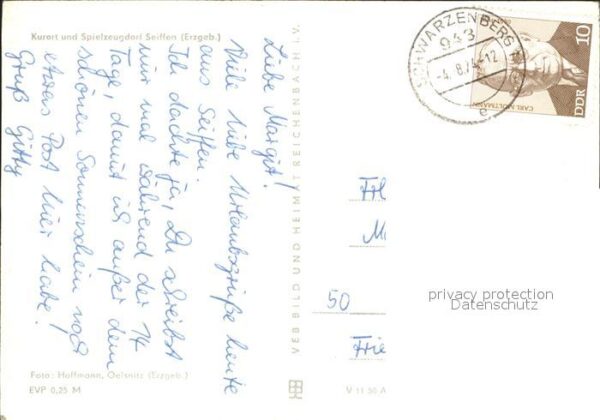 Kurort und Spielzeugdorf Seiffen (Erzgeb.)
Liebe Margit!
Viele liebe Urlaubsgrüße heute
aus Seiffen.
Ich dachte ja, Du schreibst
mir mal während der 14
Tage, damit ich außer dem
schönen Sonnenschein noch
etwas Post hier habe.
Gruß Gitty
Foto: Hoffmann, Oelsnitz (Erzgeb.)
EVP 0,25 M
VEB BILD UND HEIMAT REICHENBACH I. V.
V 11 50 A
SCHWARZENBERG
943
-4. 8. 74-12
e
CARL MOLTMANN
10
DDR
50
Frie
privacy protection
Datenschutz